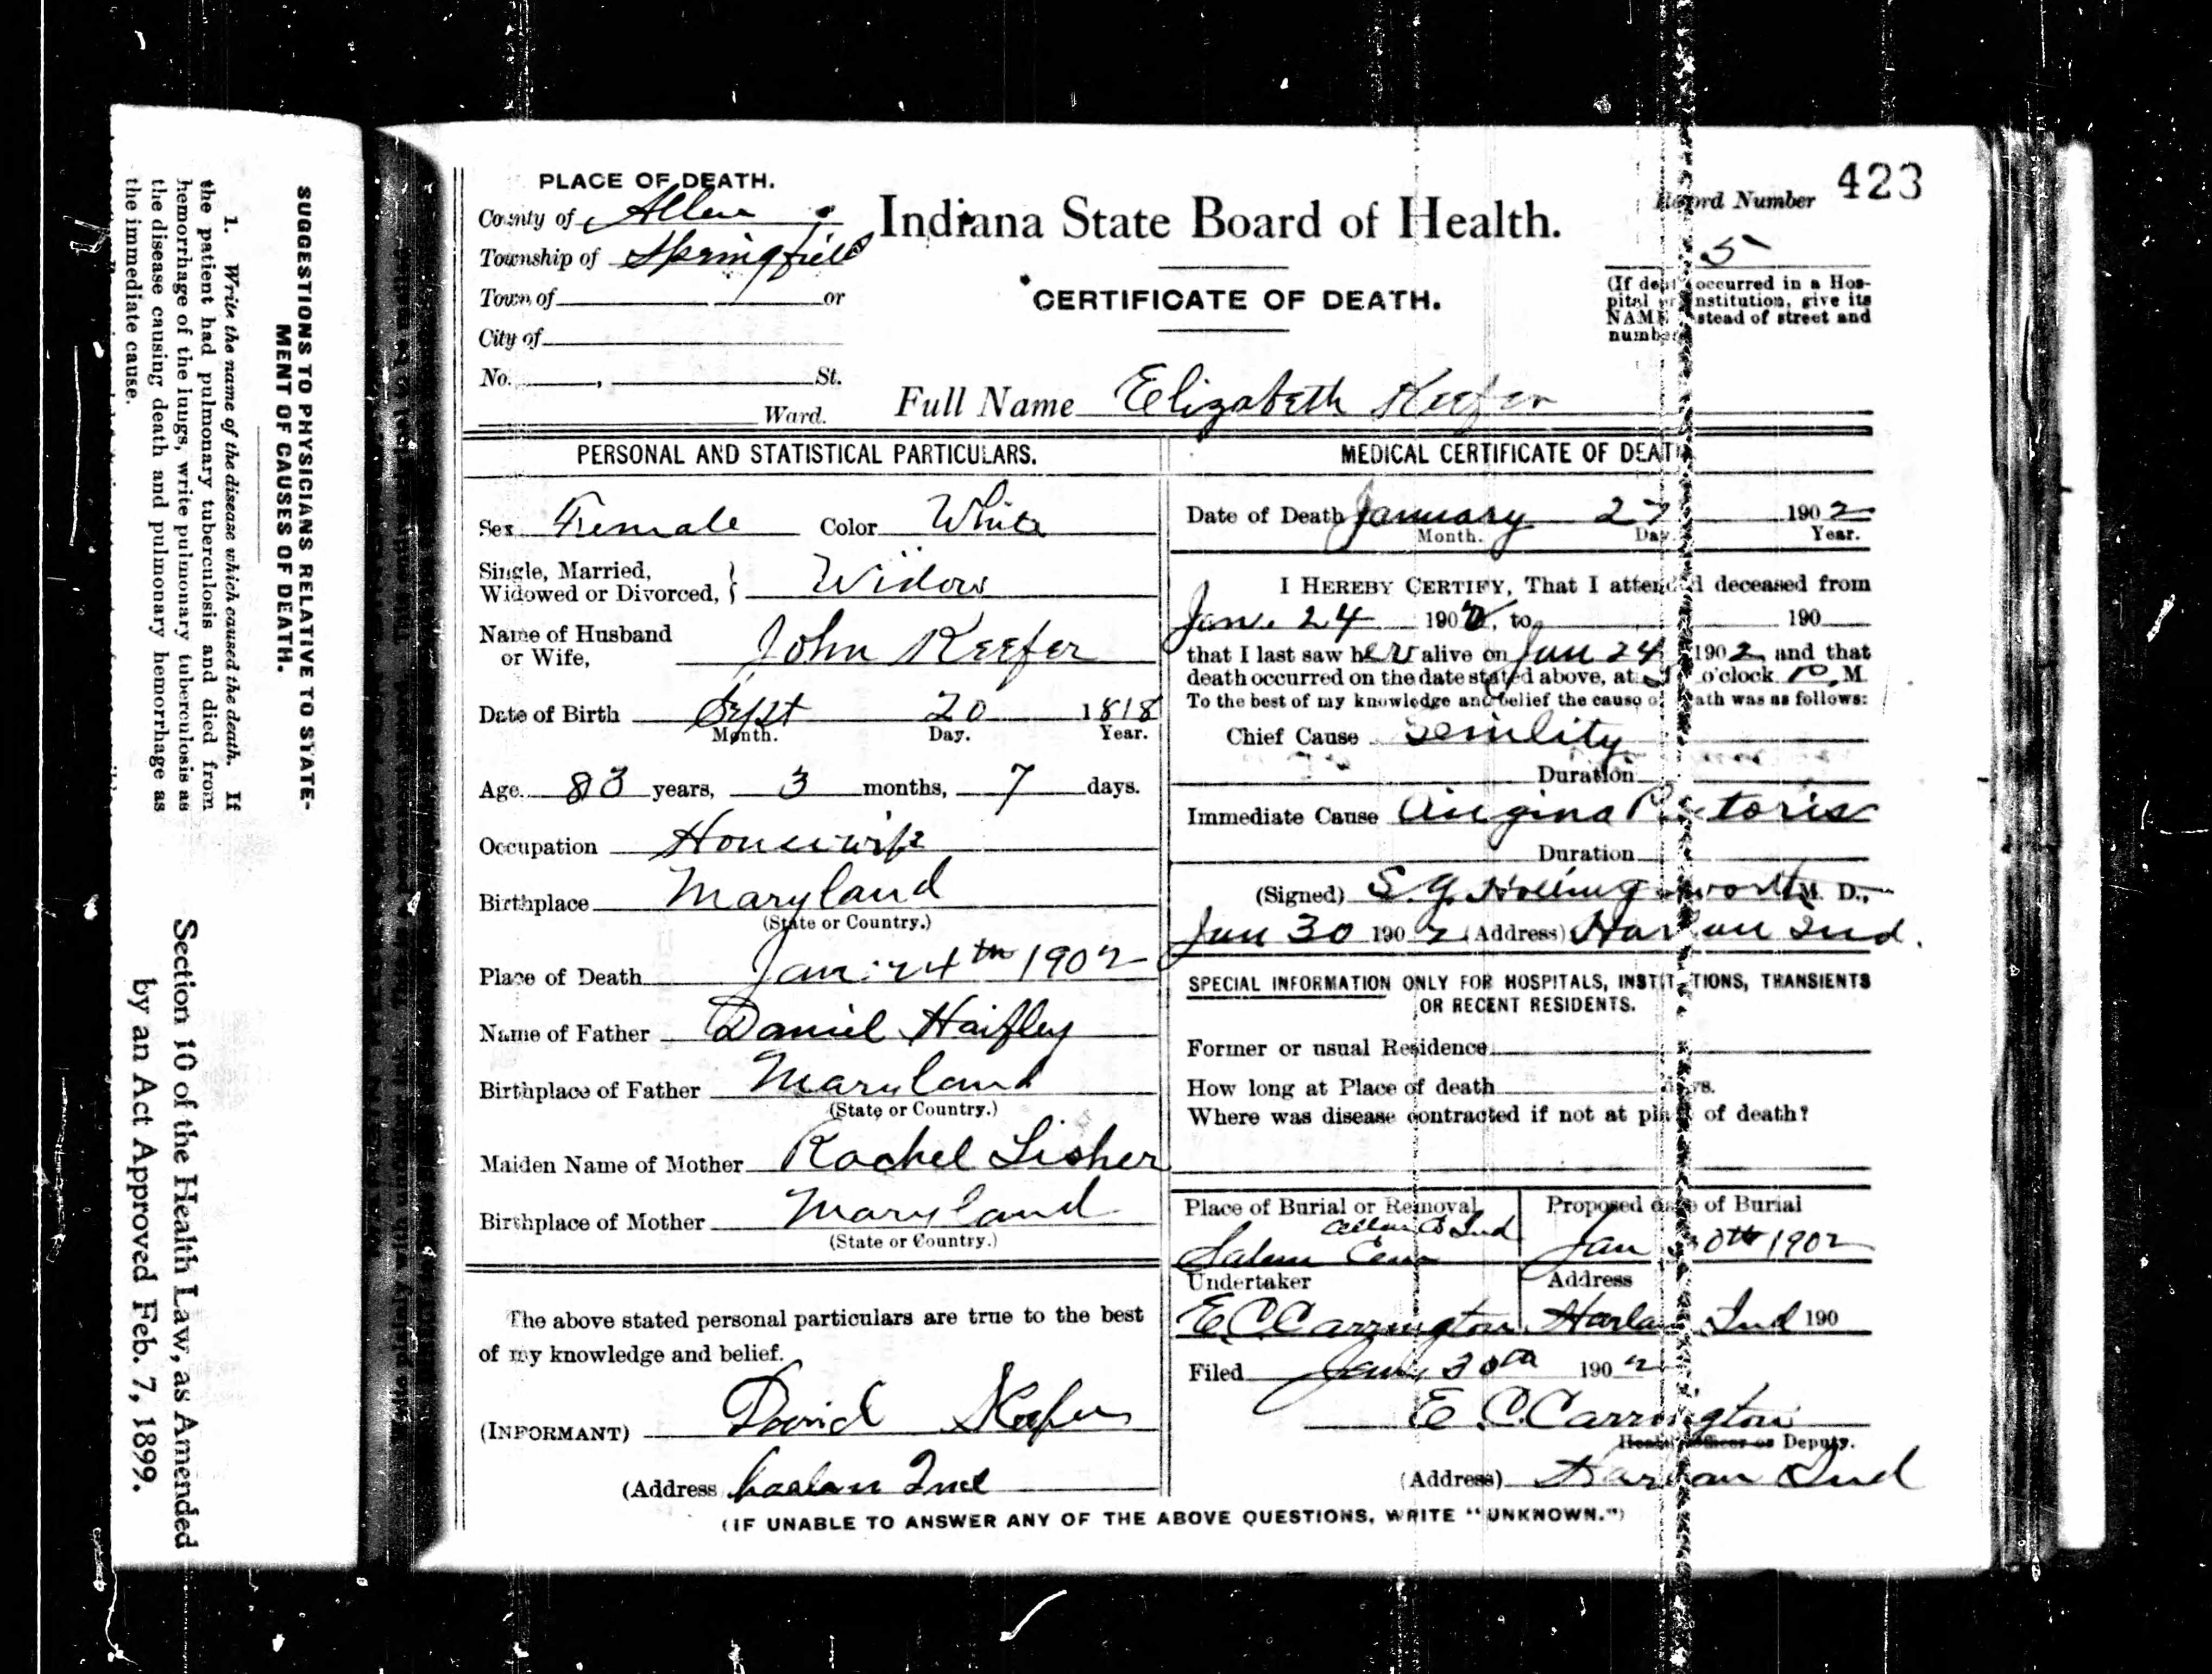 SUGGESTIONS TO PHYSICIANS RELATIVE TO STATE-
MENT OF CAUSES OF DEATH.
1. Write the name of the disease which caused the death. If
the patient had pulmonary tuberculosis and died from
hemorrhage of the lungs, write pulmonary tuberculosis as
the disease causing death and pulmonary hemorrhage as
the immediate cause.
Section 10 of the Health Law, as Amended
by an Act Approved Feb. 7, 1899.
423
PLACE OF DEATH.
County of Allen
Township of Springfield
Town of or
City of
No. , St.
Ward.
Indiana State Board of Health.
CERTIFICATE OF DEATH.
Record Number
5
(If death occurred in a Hos-
pital or institution, give its
NAME instead of street and
number
Full Name Elizabeth Keefer
PERSONAL AND STATISTICAL PARTICULARS.
Sex Female Color White
Single, Married,
Widowed or Divorced, } Widow
Name of Husband
or Wife, John Keefer
Date of Birth Sept 20 1818
Month. Day. Year.
Age 83 years, 3 months, 7 days.
Occupation Housewife
Birthplace Maryland
(State or Country.)
Place of Death Jan 24th 1902
Name of Father Daniel Haifley
Birthplace of Father Maryland
(State or Country.)
Maiden Name of Mother Rachel Lisher
Birthplace of Mother Maryland
(State or Country.)
The above stated personal particulars are true to the best
of my knowledge and belief.
(INFORMANT) David Keefer
(Address Harlan Ind
MEDICAL CERTIFICATE OF DEATH
Date of Death January 27 1902
Month. Day. Year.
I HEREBY CERTIFY, That I attended deceased from
Jan. 24 1902, to 190
that I last saw her alive on Jan 24 1902 and that
death occurred on the date stated above, at 5 o'clock P. M
To the best of my knowledge and belief the cause of death was as follows:
Chief Cause Senility
Duration
Immediate Cause Angina Pectoris
Duration
(Signed) S. G. Hollingsworth M. D.,
Jan 30 1902 (Address) Harlan Ind.
SPECIAL INFORMATION ONLY FOR HOSPITALS, INSTITUTIONS, TRANSIENTS
OR RECENT RESIDENTS.
Former or usual Residence
How long at Place of death days.
Where was disease contracted if not at place of death?
Place of Burial or Removal
Allen Co Ind
Salem Cem
Proposed date of Burial
Jan 30th 1902
Undertaker Address
E. C. Carrington Harlan Ind 190
Filed Jan, 30th 1902
E. C. Carrington
Health Officer or Deputy.
(Address) Harlan Ind
(IF UNABLE TO ANSWER ANY OF THE ABOVE QUESTIONS, WRITE "UNKNOWN.")